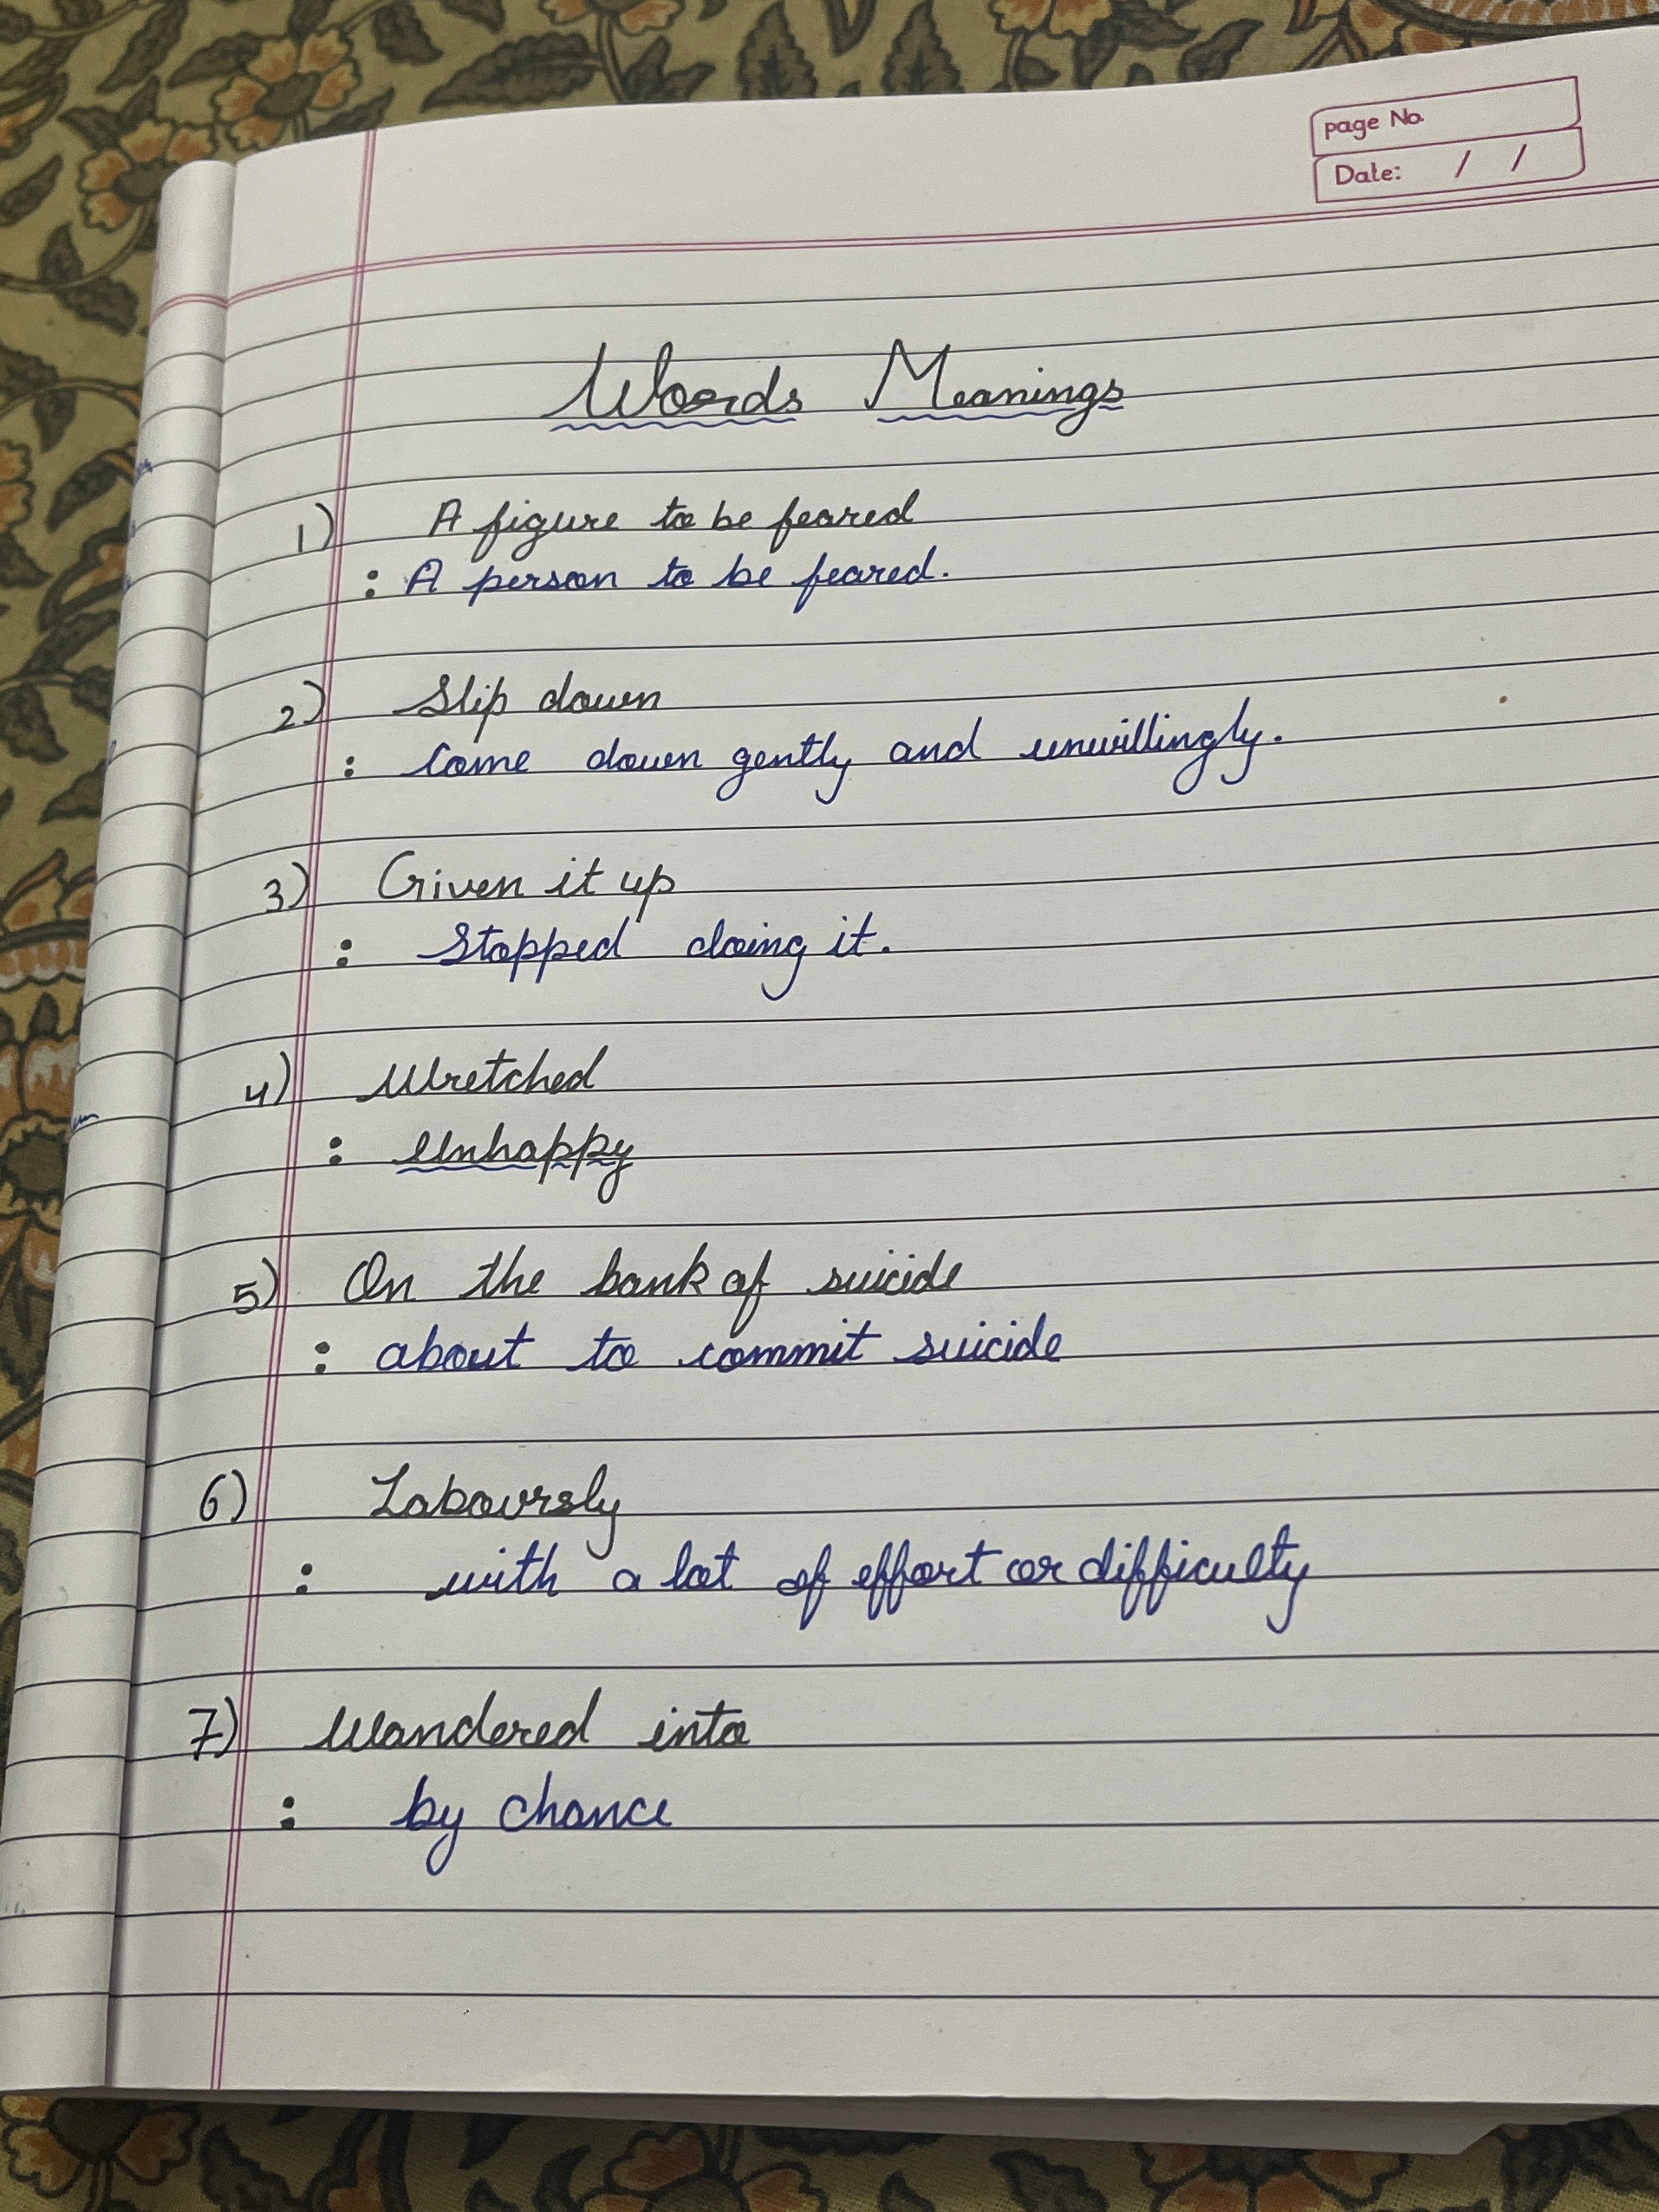 page No.
Date: / /
Words Meanings
1) A figure to be feared
: A person to be feared.
2) Slip down
: Come down gently and unwillingly.
3) Given it up
: Stopped doing it.
4) Wretched
: Unhappy
5) On the bank of suicide
: about to commit suicide
6) Laboursly
: with a lot of effort or difficulty
7) Wandered into
: by chance